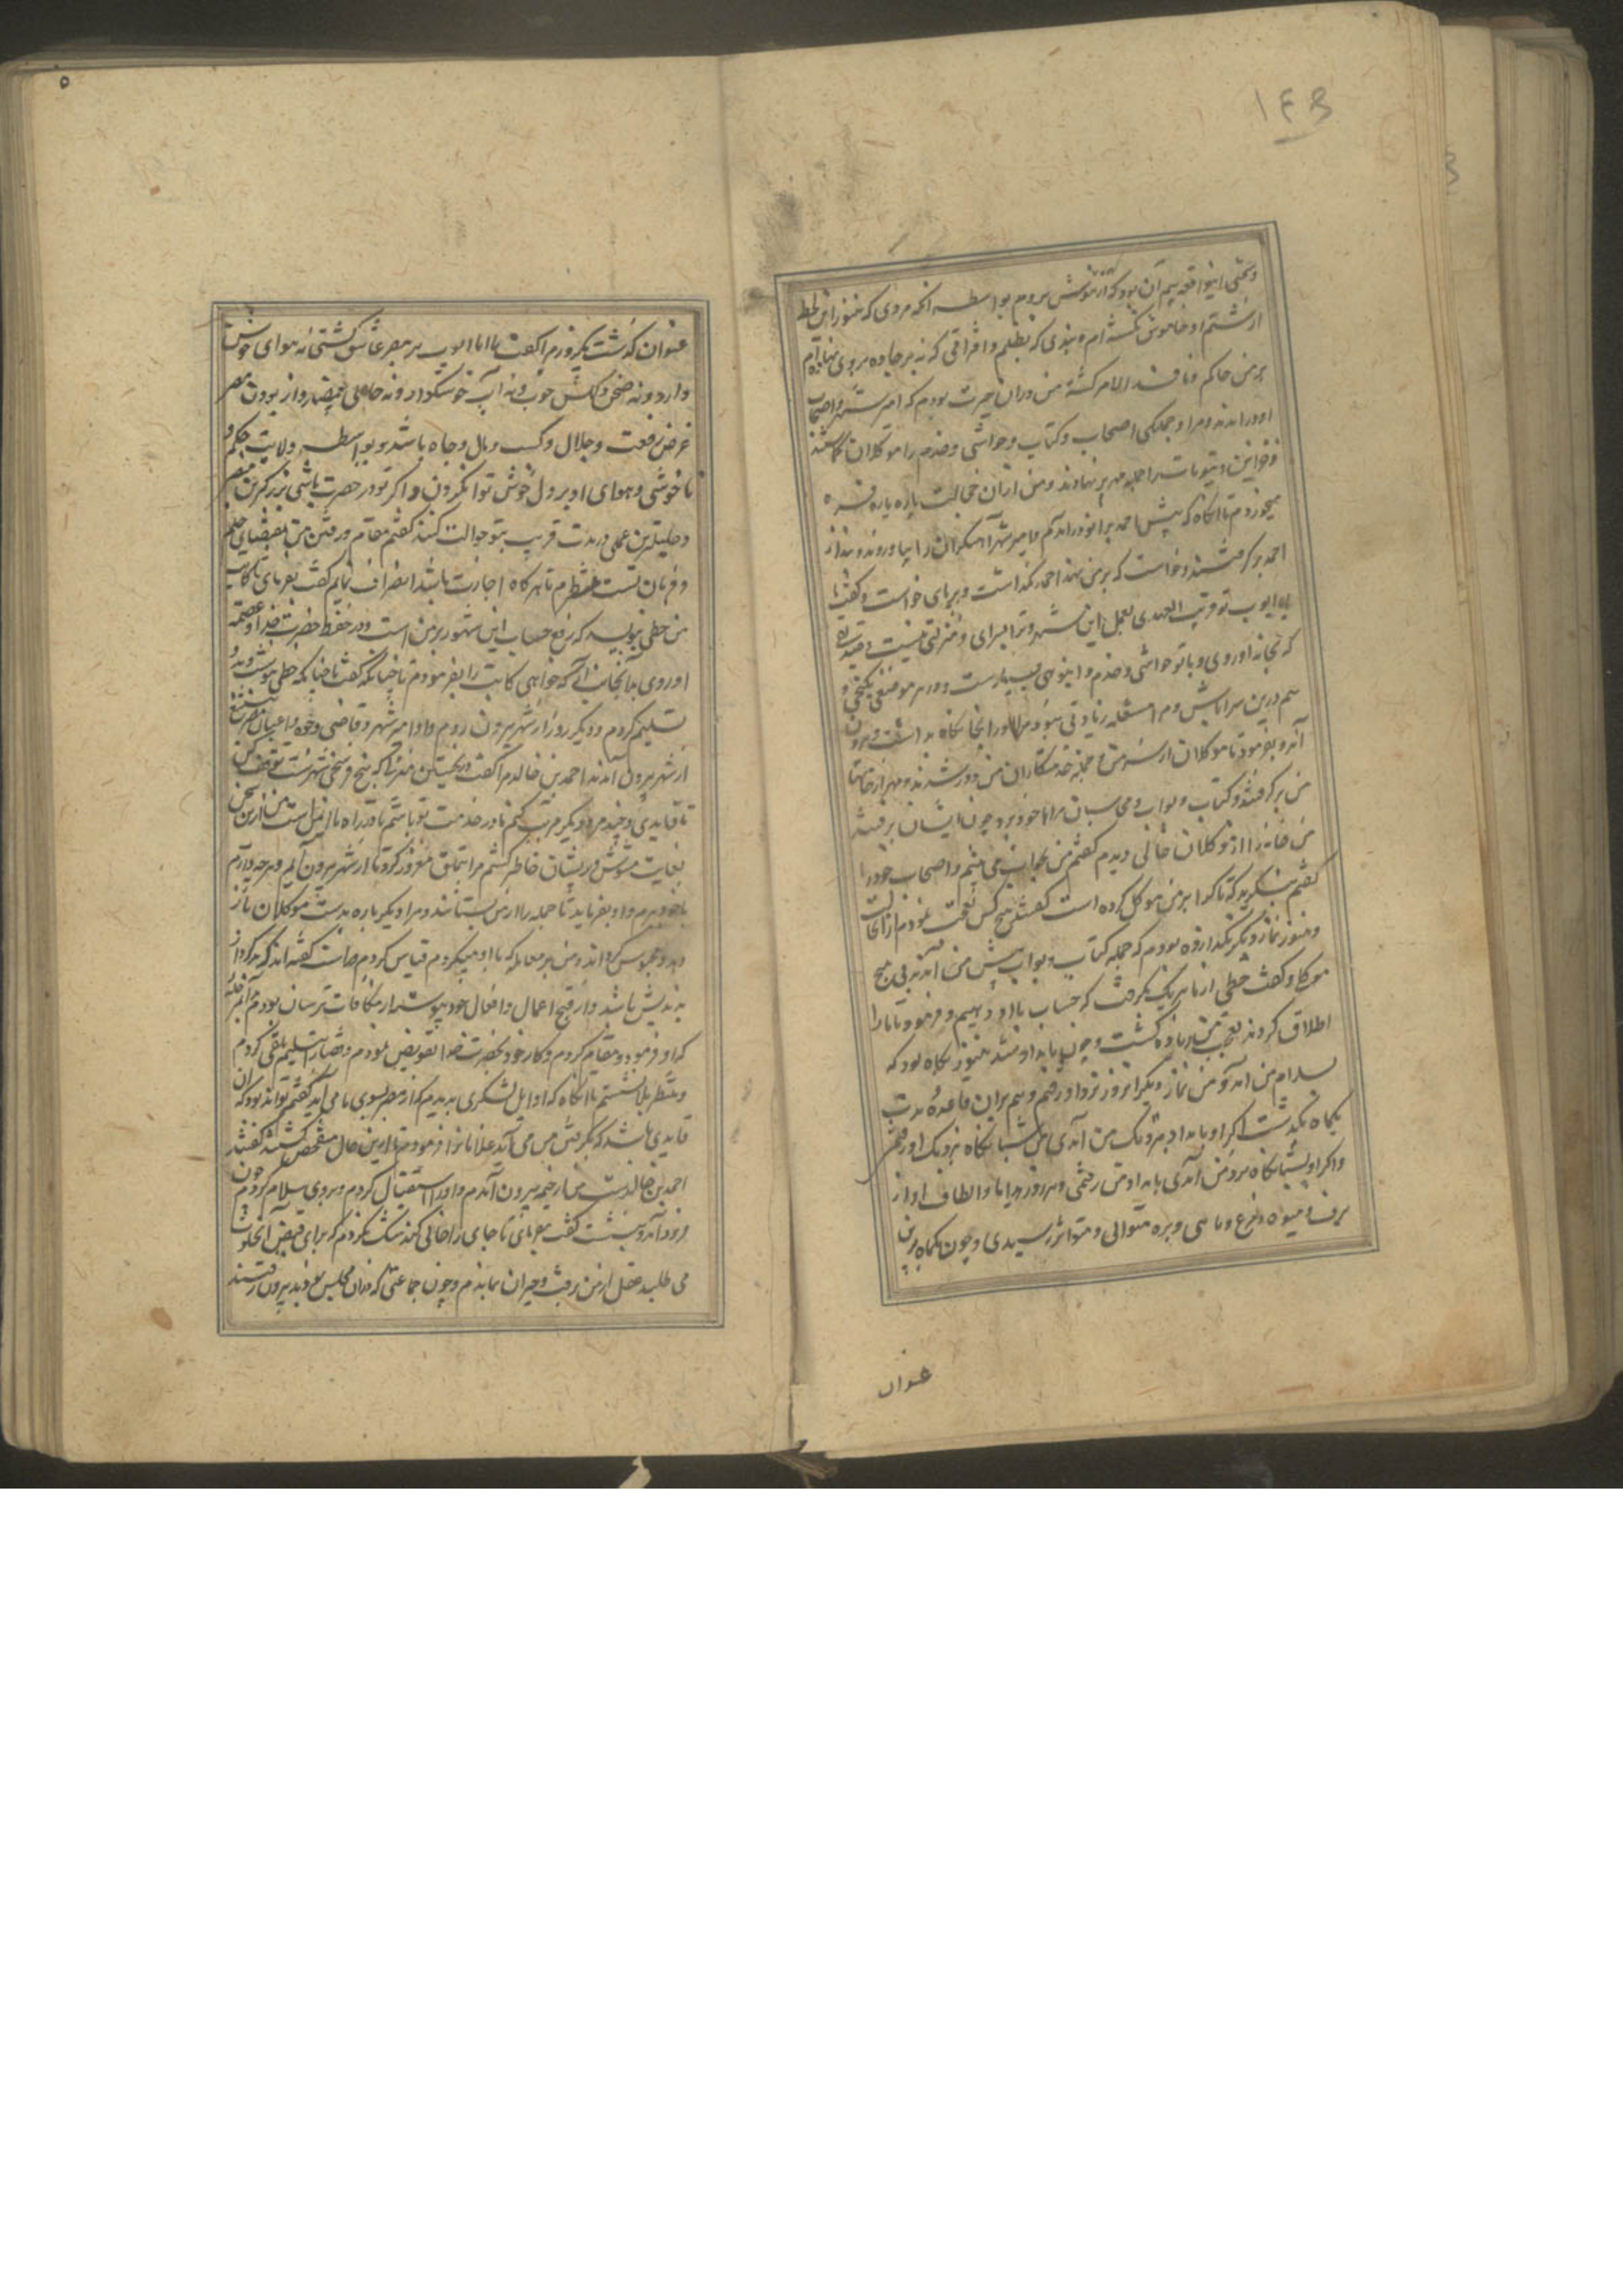 ١٤٣
و سختی این واقعه بیم آن بود که از هوش بروم بواسطه آنکه مردی که هنوز از این لحظه
از شتم او خاموش نگشته ام و بندی که بظلم و افراقی که نه بر جاده بروی نهاده ام
بر من حاکم و نافذ الامر گشته من در آن حیرت بودم که امیر شهر و اصحاب
او در آمدند و مرا و جملگی اصحاب و کتاب و حواشی و خدم را موکلان گماشتند
و خزاین و بیوتات را جمله مهر بر نهادند و من از آن خجالت پاره پاره
میخوردم تا آنگاه که پیش احمد بزانو در آمدم و امیر شهر آهنگران را بیاورد و بند از
احمد بر گرفتند و خواست که بر من نهد احمد نگذاشت و بر پای خواست و گفت یا
ابا ایوب تو قریب العهدی بعمل این شهر و ترا سرای و منزلی نیست
که بخانه او روی و با تو حواشی و خدم و ابنوهی بسیارست و در هر موضعی نگنجی و
هم درین سرا باش و مرا مشغله زیادتی نبود مرا و را آنجا نگاه بداشت و بیرون
آمد و بفرمود تا موکلان از سر من و جمله خدمتکاران من دور شدند و مهر از خانها
من بر گرفتند و کتاب و نواب و محاسبان مرا با خود ببرد چون ایشان برفتند
من خانه را از موکلان خالی دیدم گفتم من بخواب می بینم و اصحاب خود را
گفتم بنگرید که تا کرا بر من موکل کرده است گفتند هیچ کس تعجب نمودم از آن حالت
و هنوز نماز دیگر نگذارده بودم که جمله کتاب و نواب پیش من آمدند بی هیچ
موکل و گفت خطی از ما هر یک بگرفت که حساب با او دهیم و فرمود تا ما را
اطلاق کردند تعجب من زیاده گشت و چون بامداد شد هنوز پگاه بود که
بسلام من آمد و من نماز دیگر آنروز نزد او رفتم و هم بران قاعده مدت
یکماه بگذشت اگر او بامداد بنزدیک من آمدی من شبانگاه نزدیک او رفتم
و اگر او شبانگاه نزد من آمدی بامداد من رفتمی و هر روز هدایا و الطاف او از
برف و میوه و مرغ و ماهی و بره متوالی و متواتر رسیدی و چون یکماه برین
عنوان
٥
عنوان گذشت یکروز مرا گفت یا ابا ایوب بر مصر عاشق گشتئی نه هوای خوش
دارد و نه صحن دلکش خوب و نه آب خوشگوار و نه حاصلی از بودن مصر
غرض رفعت و جلال و کسب و مال و جاه باشد و بواسطه ولایت حکم و
ناخوشی و هوای او بر دل خوش توان کردن و اگر تو در حضرت باشی بزرگترین
و جلیلترین عملی در مدت قریب بتو حوالت کنند گفتم مقام و رفتن من بمقتضای حکم
و فرمان تست منتظرم تا هر گاه اجازت باشد انصراف نمایم گفت بفرمای تا کاتب
من خطی بنویسد که رفع حساب این شهور بر من است و در حفظ حضرت خدا و عصمت
او روی بدانجانب آر که خواهی کاتب را بفرمودم تا چنانکه گفت تا چنانکه خطی بنوشت و بدو
تسلیم کردم و دیگر روز از شهر بیرون روم و او و امیر شهر و قاضی و وجوه و اعیان مصر بتشییع
از شهر بیرون آمدند احمد بن خالد مرا گفت در نخستین منزل که بر پنج فرسخی شهرست توقف کن
تا قایدی و چند مرد دیگر مرتب کنم تا در خدمت تو باشند تا در راه ایمن باشی من ازین سخن
بغایت مشوش و پریشان خاطر گشتم مرا بتملق مغرور کرد تا از شهر بیرون آیم و هر چه دارم
با خود ببرم و او بفرماید تا جمله را از من بستانند و مرا دیگر باره بدست موکلان باز
دهد و محبوس گرداند و من بر معامله که با او میکردم قیاس کردم راست گفته اند که هر که کردار
بد اندیش باشد و از قبح اعمال و افعال خود پیوسته از مکافات ترسان بودم فی الجمله
که او فرمود مقام کردم و کار خود بحضرت خدا تفویض نمودم و قضا را بتسلیم تلقی کردم
و منتظر بلا نشستم تا آنگاه که اوایل لشکری بدیدم که از مصر بسوی ما می آید گفتم تواند بود که آن
قایدی باشد که بگرفتن من می آید غلامانرا فرمودم تا ازین حال متفحص گشتند گفتند
احمد بن خالدست من از خیمه بیرون آمدم و او را استقبال کردم و بروی سلام کردم چون
فرود آمد و بنشست گفت بفرمای تا جای را خالی کنند شک نکردم که برای قبض آن خلوت
می طلبد عقل از من برفت و حیران بماندم و چون جماعتی که در آن مجلس بودند بیرون رفتند